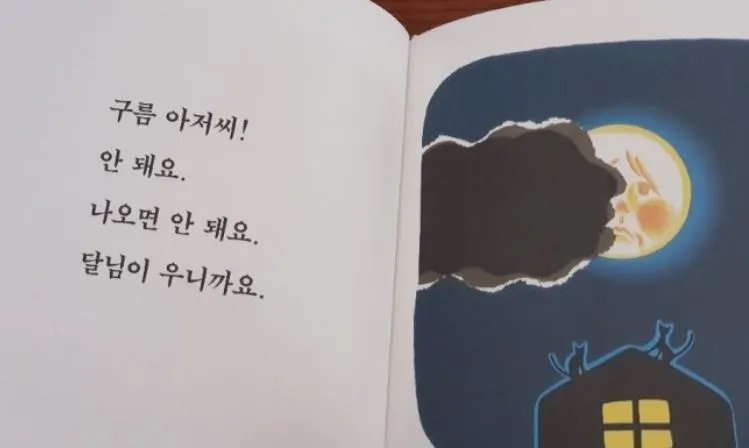 구름 아저씨!
안 돼요.
나오면 안 돼요.
달님이 우니까요.